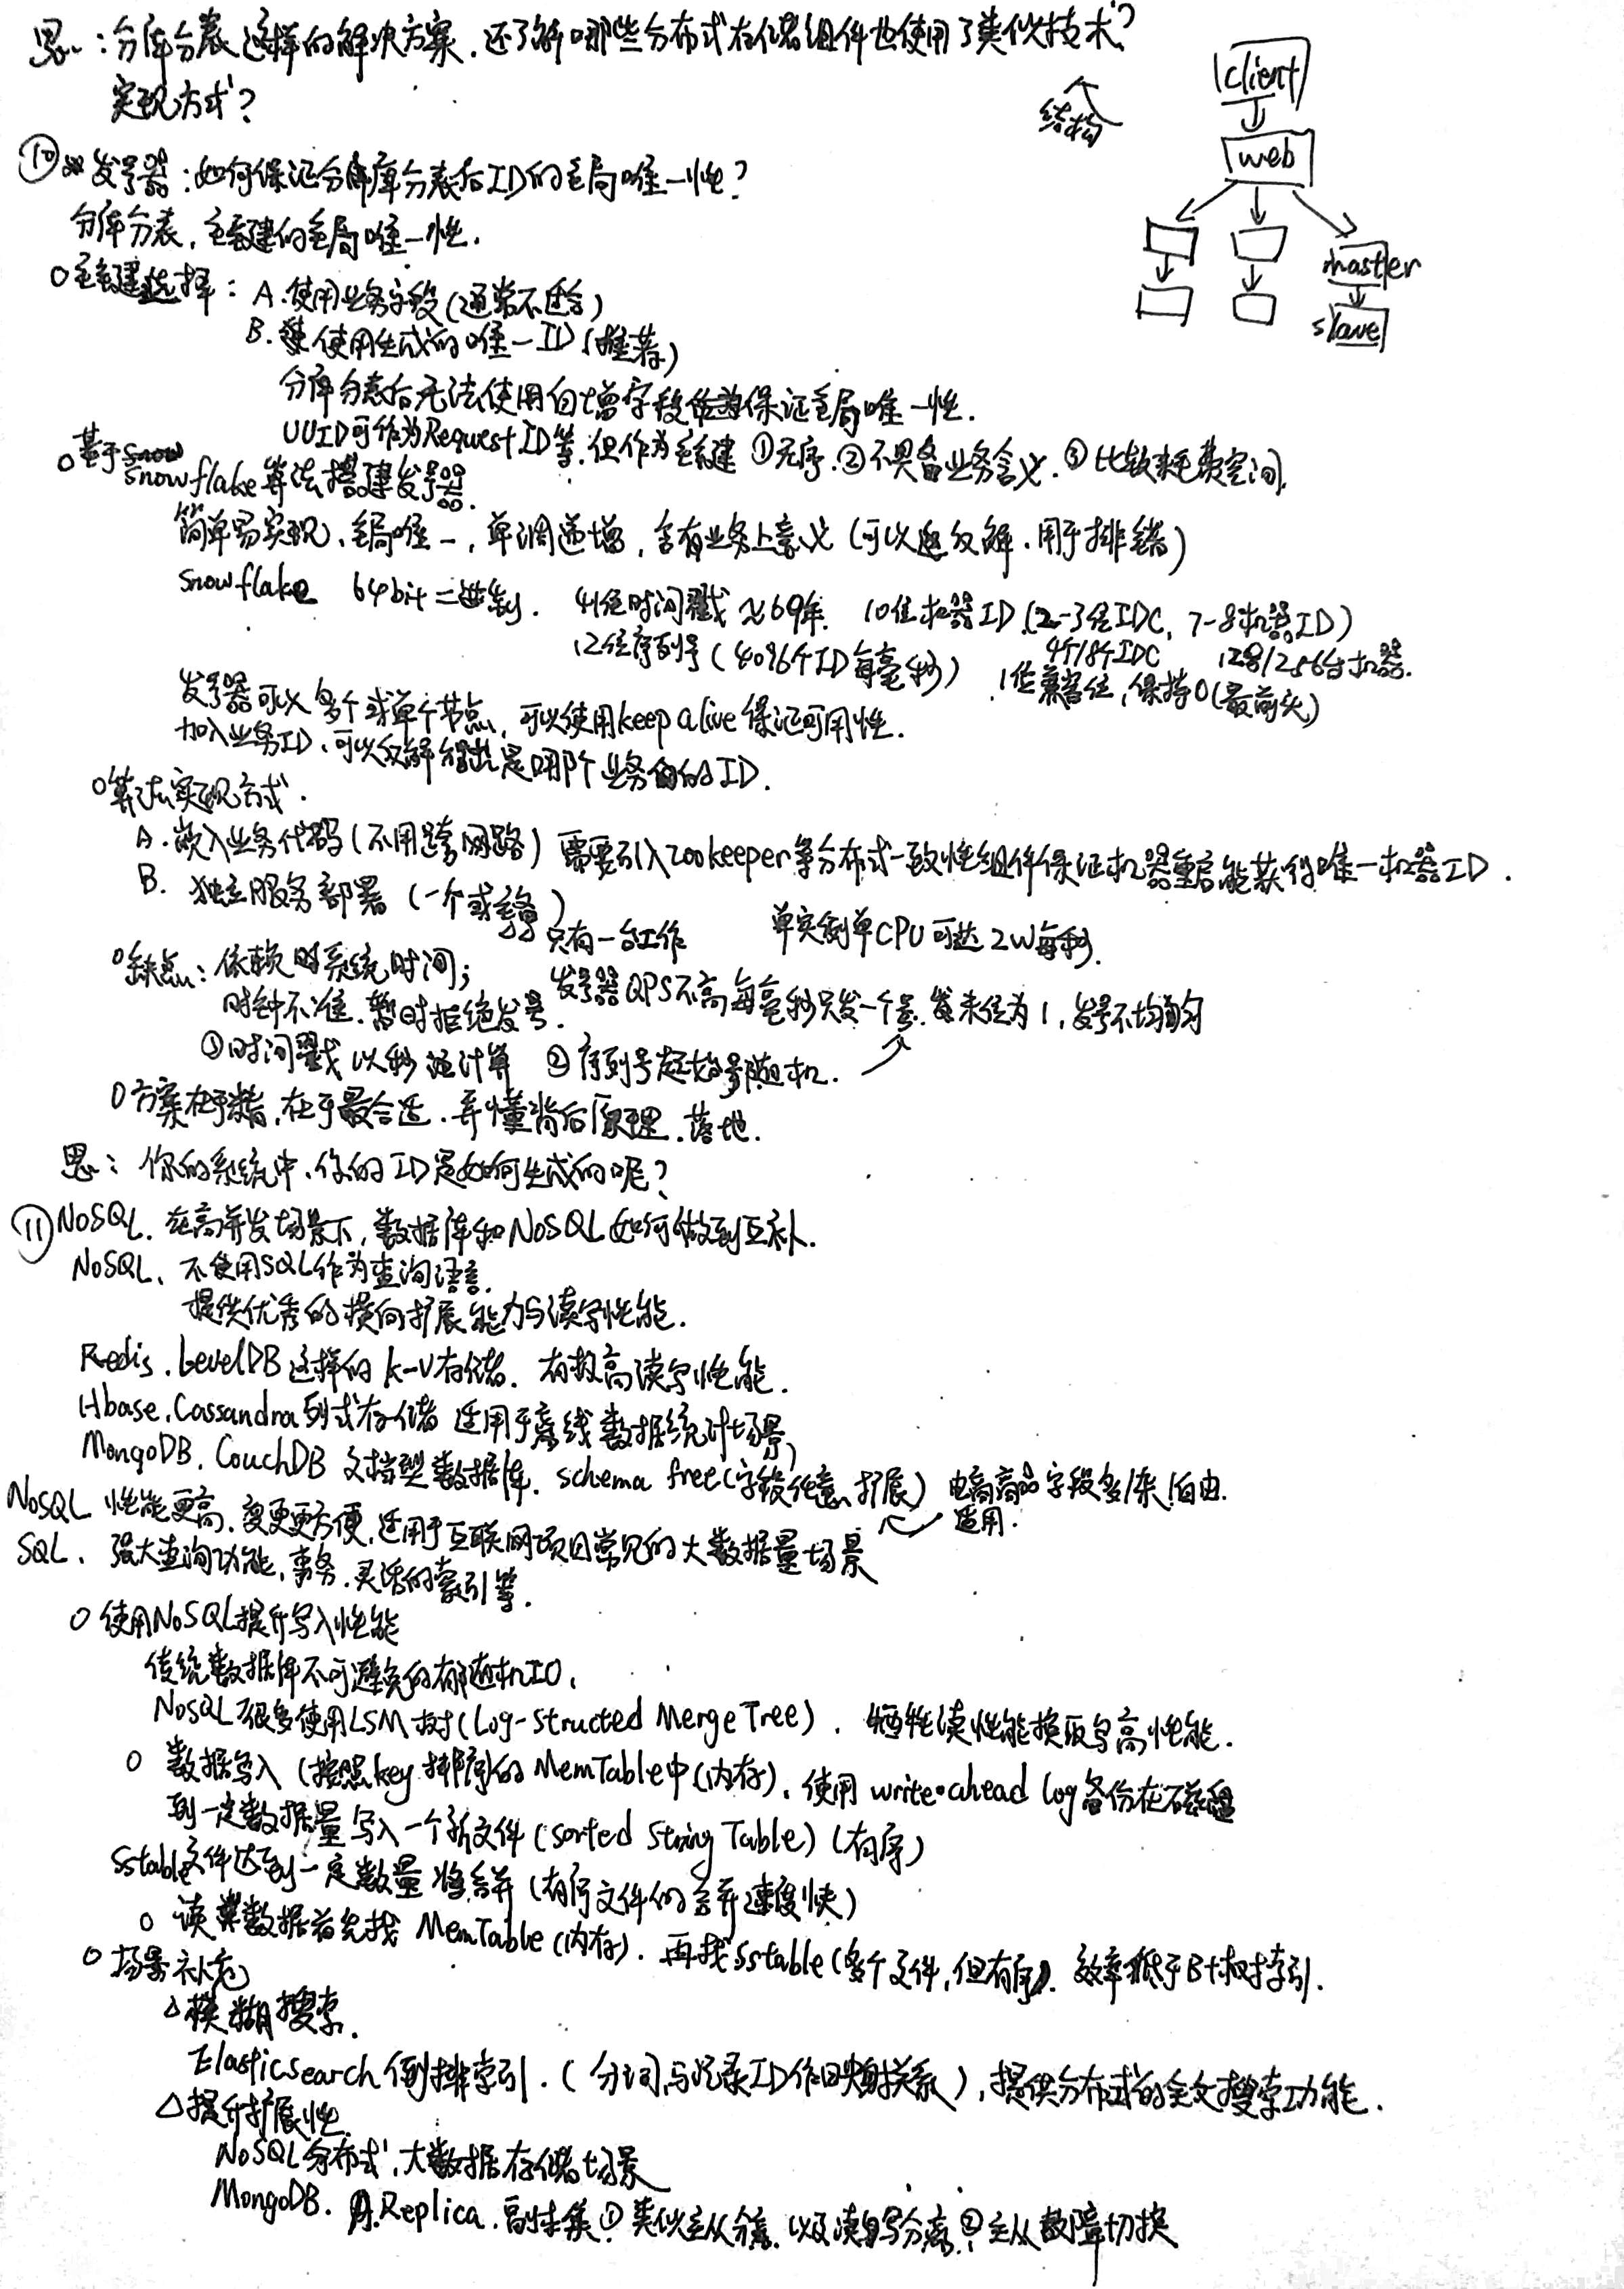 思：分库分表这样的解决方案，还了解哪些分布式存储组件也使用了类似技术？
实现方式？
结构
client
web
master
slave
⑩ 发号器：如何保证分库分表后ID的全局唯一性？
分库分表，主键的全局唯一性．
○主键选择：A.使用业务字段（通常不适合）
B. 使用生成的唯一ID（推荐）
分库分表后无法使用自增字段 保证全局唯一性．
UUID可作为Request ID等，但作为主键 ①无序．②不具备业务含义．③比较耗费空间．
○基于
snowflake算法搭建发号器．
简单易实现、全局唯一，单调递增，含有业务上意义（可以反解．用于排错）
snowflake 64bit二进制． 41位时间戳 ≈69年． 10位机器ID（2-3位IDC，7-8机器ID）
4个/8个IDC 128/256台机器．
12位序列号（4096个ID每毫秒） 1位兼容位，保持0（最前头）
发号器可以多个或单个节点，可以使用keepalive保证可用性．
加入业务ID、可以反解 是哪个业务的ID．
○算法实现方式．
A.嵌入业务代码（不用跨网路）需要引入zookeeper等分布式一致性组件保证机器重启能获得唯一机器ID．
B. 独立服务部署（一个或主备）
只有一台工作 单实例单CPU可达2W每秒．
○缺点：依赖 系统时间；
时钟不准．暂时拒绝发号． 发号器QPS不高每毫秒只发一个号．末位为1，发号不均匀
①时间戳以秒 计算 ②序列号起始号随机．
○方案 ，在乎最合适．弄懂背后原理．落地．
思：你的系统中．你的ID是如何生成的呢？
⑪ NoSQL．在高并发场景下，数据库和NoSQL如何做到互补．
NoSQL、不使用SQL作为查询语言．
提供优秀的横向扩展能力与读写性能．
Redis．LevelDB这样的k-v存储．有极高读写性能．
Hbase．Cassandra列式存储 适用于离线数据统计场景
MongoDB．CouchDB 文档型数据库．schema free（字段任意扩展） 电商商品字段多/杂/自由．
适用．
NoSQL 性能更高．变更更方便．适用于互联网项目常见的大数据量场景
SQL．强大查询功能，事务．灵活的索引等．
○使用NoSQL提升写入性能
传统数据库不可避免的有随机IO．
NoSQL很多使用LSM树（Log-Structed Merge Tree）．牺牲读性能换取写高性能．
○ 数据写入（按照key排序）的MemTable中（内存）．使用write-ahead log备份在磁盘
到一定数据量写入一个新文件（sorted String Table）（有序）
Sstable文件达到一定数量将合并（有序文件的合并速度快）
○ 读 数据首先找 MemTable（内存）．再找Sstable（多个文件，但有序）．效率低于B+树索引．
○场景补充
△模糊搜索．
Elasticsearch倒排索引．（分词与记录ID作映射关系），提供分布式的全文搜索功能．
△提升扩展性
NoSQL分布式，大数据存储场景
MongoDB．Replica．副本集①类似主从分离．以及读写分离．②主从故障切换